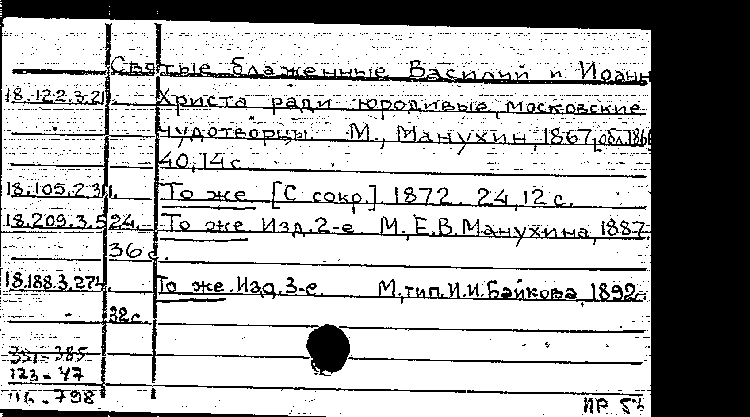 Святые блаженные Василий и Иоанн
18.122.3.21. Христа ради юродивые, московские
чудотворцы. М., Манухин, 1867
40,14 с.
18.105.2.311. То же [С сокр.] 1872. 24,12 с.
18.209.3.524. То же Изд. 2-е М., Е.В. Манухина, 1887
36 с.
18.188.3.274. То же. Изд. 3-е. М., тип. И.И. Байкова, 1892
32 с.
331-385
123-47
116-798